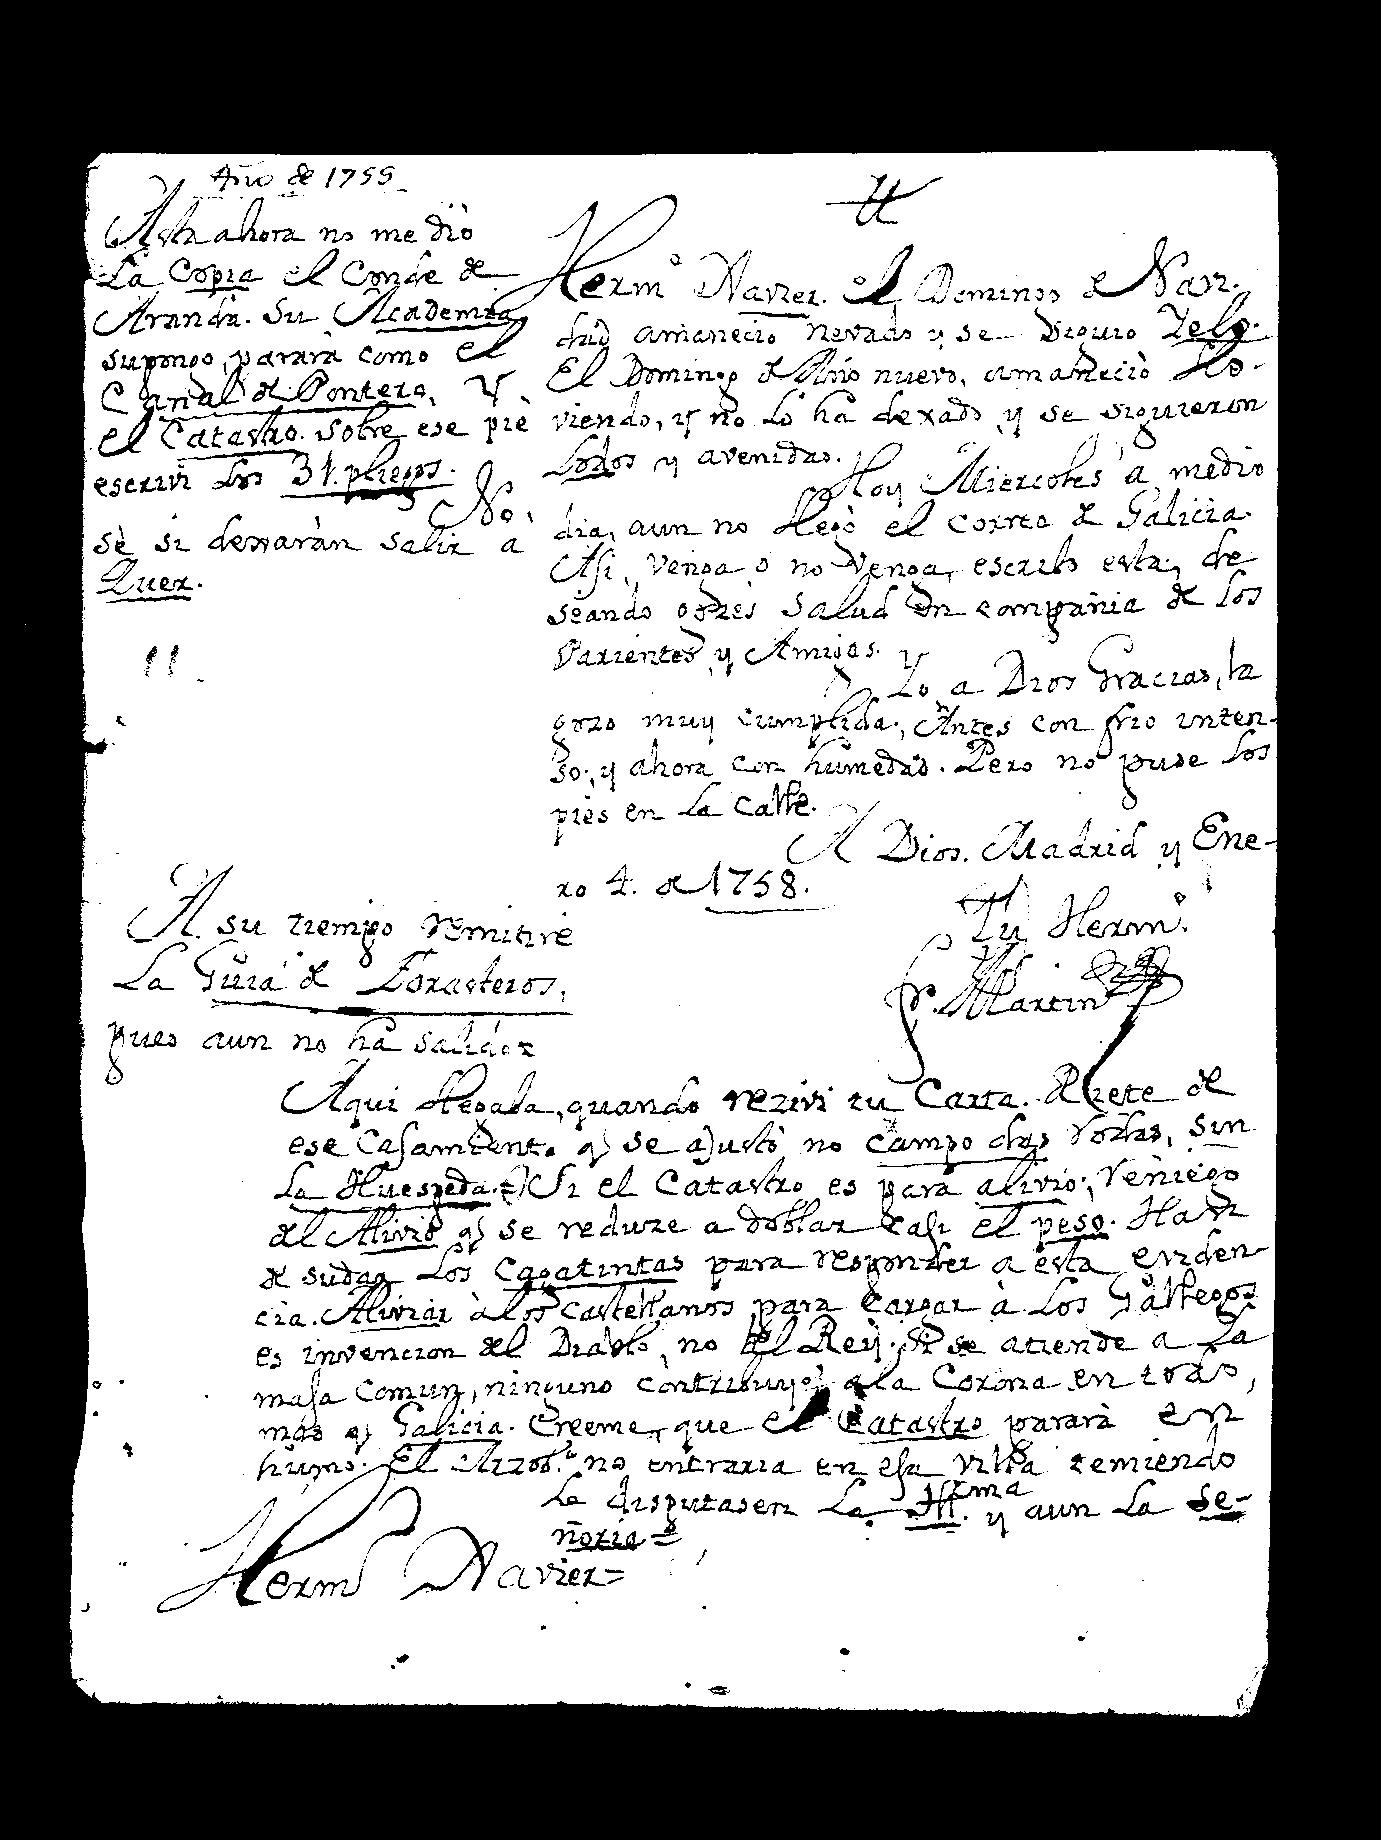 Año de 1755
Asta ahora no me dio
La Copia el Conde de
Aranda. Su Academia
supongo, pararà como el
Canal de Pontero, y
el Catastro. Sobre ese piè
escrivi los 34. pliegos.
No
sè si dexaràn salir a
Quer.
Hermº Xavier. el Domingo de Navi-
dad amaneciò nevado y se siguio Yelo.
El Domingo de Año nuevo, amaneciò llo-
viendo, y no lo ha dexado y se siguieron
Lodos y avenidas.
Hoy Miercoles a medio
dia, aun no llegò el correo de Galicia.
Asi, venga o no venga, escribo esta, de
seando gozes salud en compañia de los
Parientes y Amigos.
Yo a Dios Gracias, la
gozo muy cumplida; Antes con frio inten-
so; y ahora con humedad. Pero no puse los
pies en la calle.
A Dios. Madrid y Ene-
ro 4. de 1758.
Tu Hermº
Fr. Martin
A su tiempo remitirè
La Guia de Forasteros,
pues aun no ha salido
Aqui llegaba, quando rezivi tu Carta. Riete de
ese Casamiento q se ajustò no campo das sortas, sin
La Huespeda. Si el Catastro es para alivio; reniego
del Alivio q se reduze a doblar casi el peso. Han
de sudar los Cagatintas para responder a esta eviden-
cia. Aliviar à los castellanos para cargar à los Gallegos
es invencion del Diablo, no del Rey. Si se atiende a la
masa comun, ninguno contribuyò a la Corona en todo,
mas q Galicia. Creeme, que el Catastro pararà en
humo. El Arzob.º no entraria en esa villa temiendo
le disputasen la Illma y aun la Se-
ñoria
Hermº Xavier